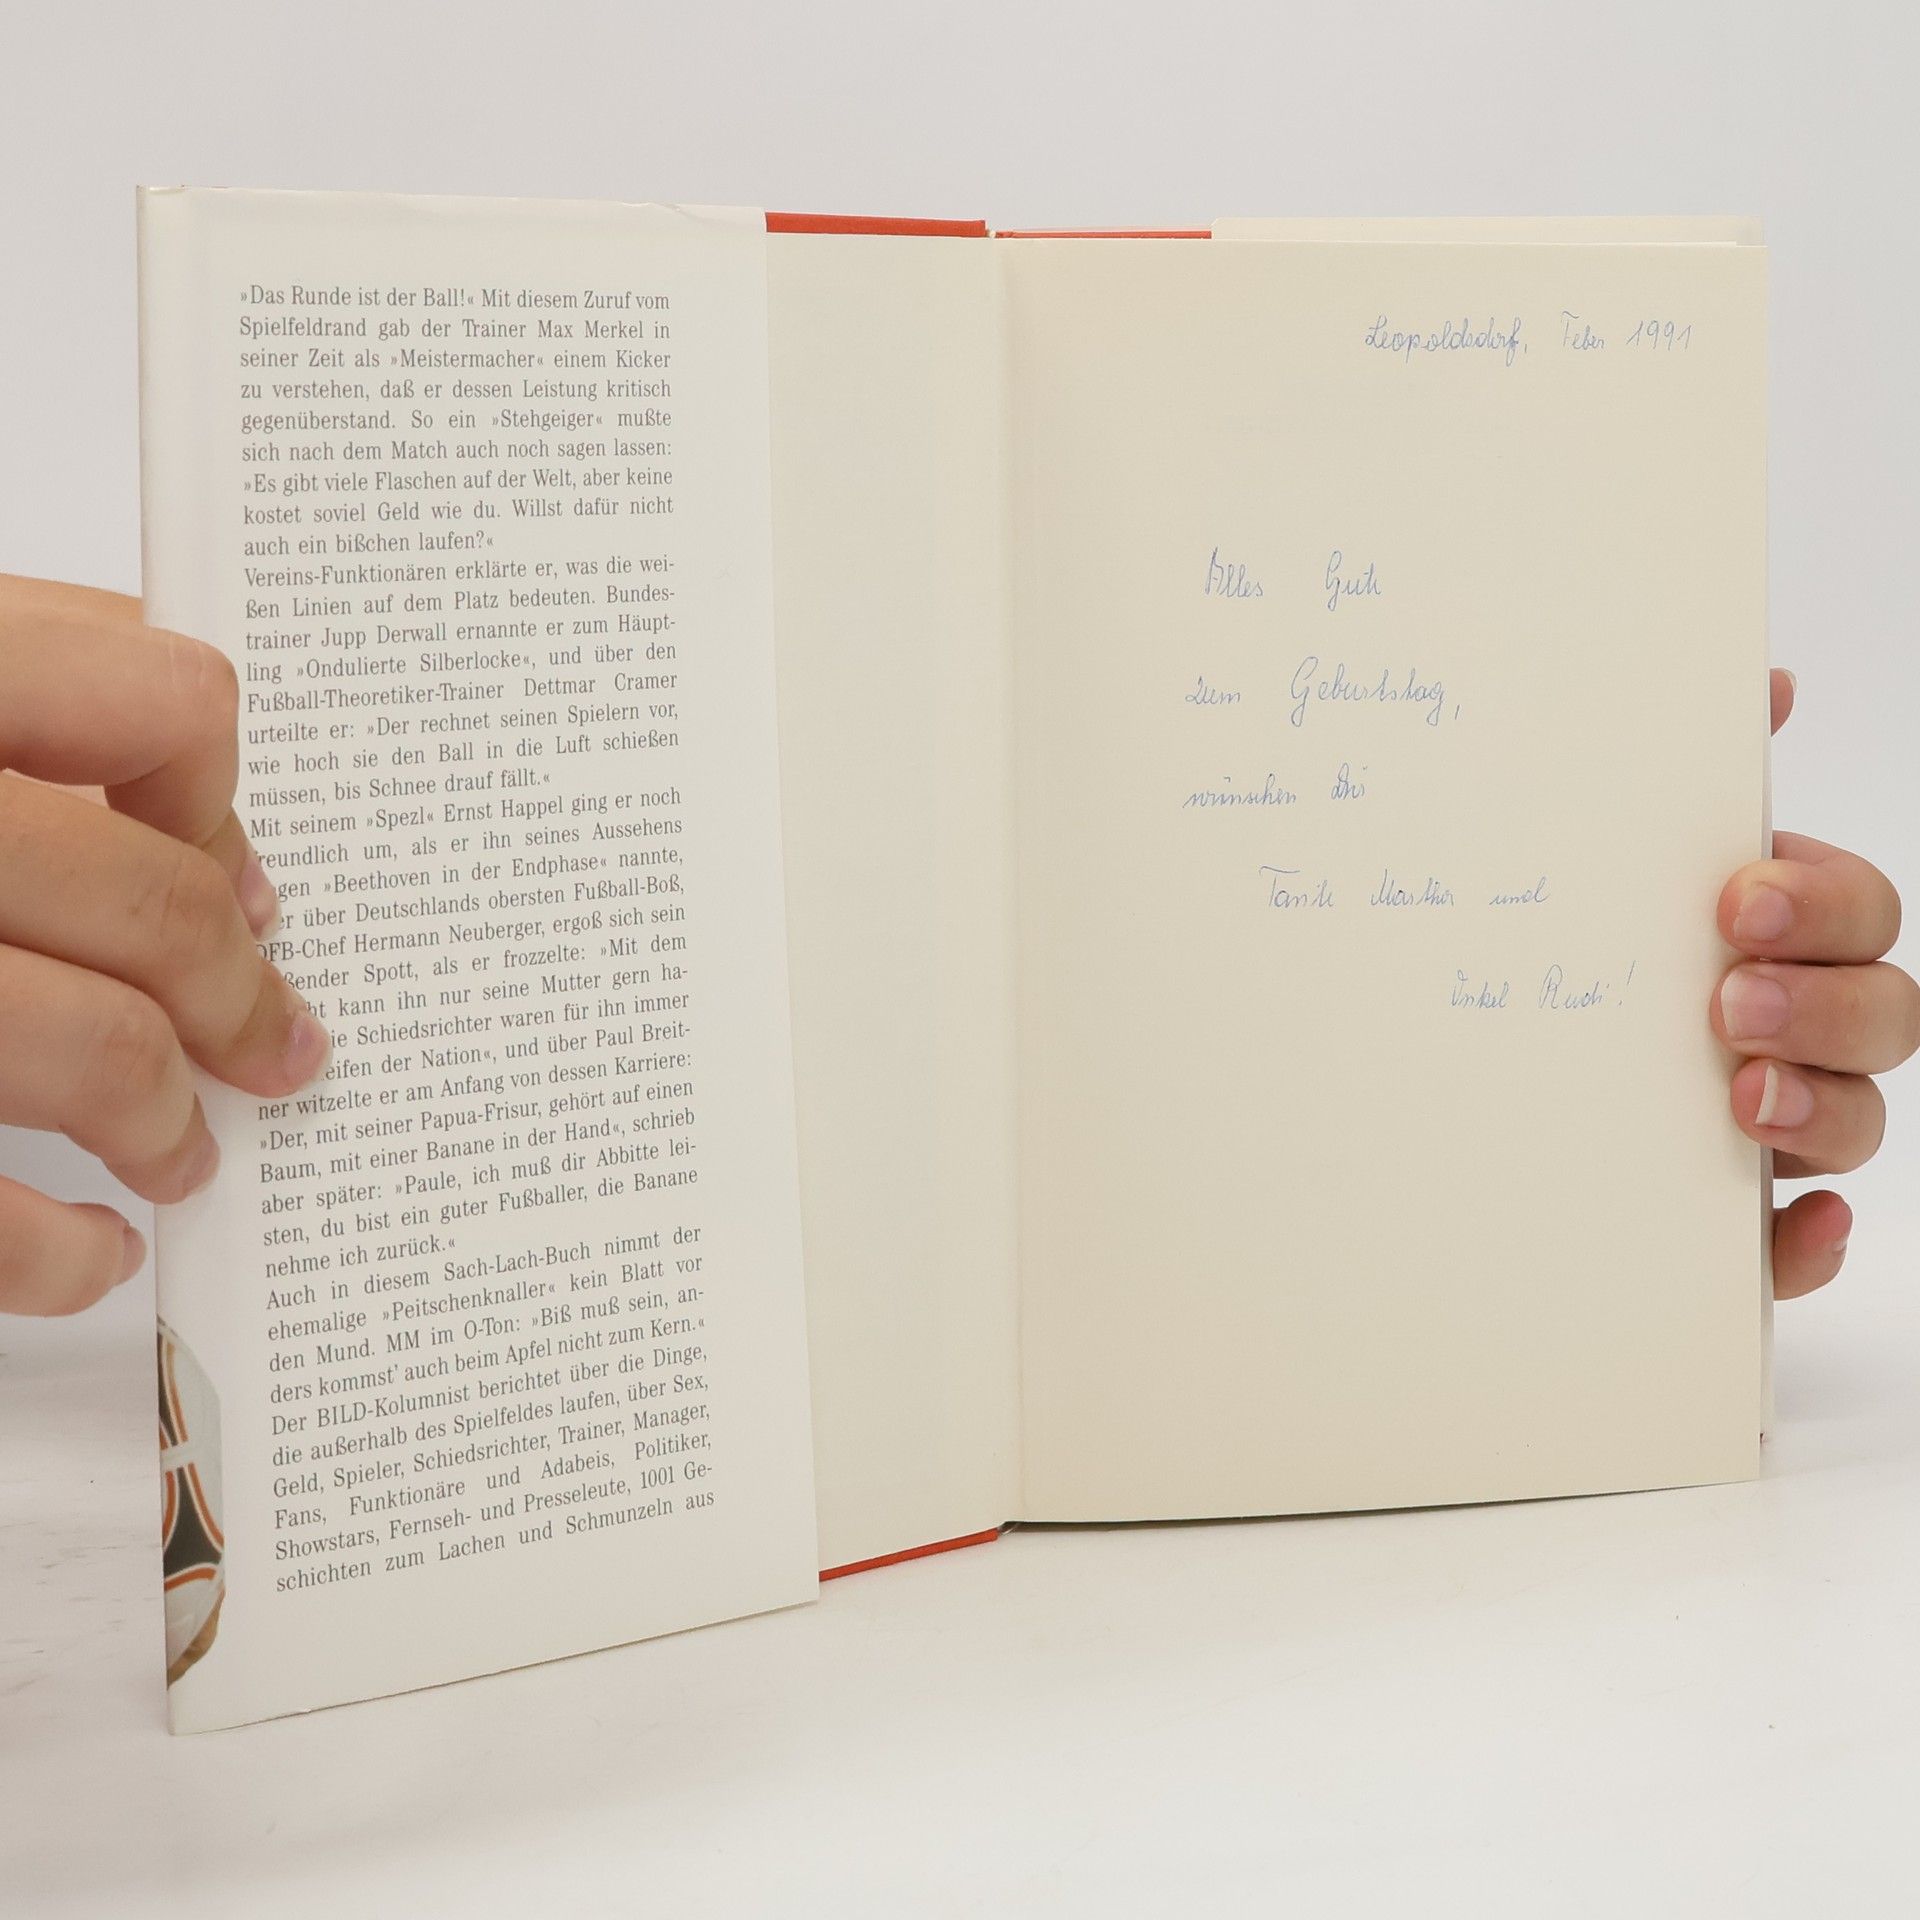 »Das Runde ist der Ball!« Mit diesem Zuruf vom
Spielfeldrand gab der Trainer Max Merkel in
seiner Zeit als »Meistermacher« einem Kicker
zu verstehen, daß er dessen Leistung kritisch
gegenüberstand. So ein »Stehgeiger« mußte
sich nach dem Match auch noch sagen lassen:
»Es gibt viele Flaschen auf der Welt, aber keine
kostet soviel Geld wie du. Willst dafür nicht
auch ein bißchen laufen?«
Vereins-Funktionären erklärte er, was die wei-
ßen Linien auf dem Platz bedeuten. Bundes-
trainer Jupp Derwall ernannte er zum Häupt-
ling »Ondulierte Silberlocke«, und über den
Fußball-Theoretiker-Trainer Dettmar Cramer
urteilte er: »Der rechnet seinen Spielern vor,
wie hoch sie den Ball in die Luft schießen
müssen, bis Schnee drauf fällt.«
Mit seinem »Spezl« Ernst Happel ging er noch
freundlich um, als er ihn seines Aussehens
»Beethoven in der Endphase« nannte,
über Deutschlands obersten Fußball-Boß,
DFB-Chef Hermann Neuberger, ergoß sich sein
Spott, als er frozzelte: »Mit dem
kann ihn nur seine Mutter gern ha-
Schiedsrichter waren für ihn immer
der Nation«, und über Paul Breit-
ner witzelte er am Anfang von dessen Karriere:
»Der, mit seiner Papua-Frisur, gehört auf einen
Baum, mit einer Banane in der Hand«, schrieb
aber später: »Paule, ich muß dir Abbitte lei-
sten, du bist ein guter Fußballer, die Banane
nehme ich zurück.«
Auch in diesem Sach-Lach-Buch nimmt der
ehemalige »Peitschenknaller« kein Blatt vor
den Mund. MM im O-Ton: »Biß muß sein, an-
ders kommst' auch beim Apfel nicht zum Kern.«
Der BILD-Kolumnist berichtet über die Dinge,
die außerhalb des Spielfeldes laufen, über Sex,
Geld, Spieler, Schiedsrichter, Trainer, Manager,
Fans, Funktionäre und Adabeis, Politiker,
Showstars, Fernseh- und Presseleute, 1001 Ge-
schichten zum Lachen und Schmunzeln aus
Leopoldsdorf, Feber 1991
Alles Gute
zum Geburtstag,
wünschen Dir
Tante Martha und
Onkel Rudi!